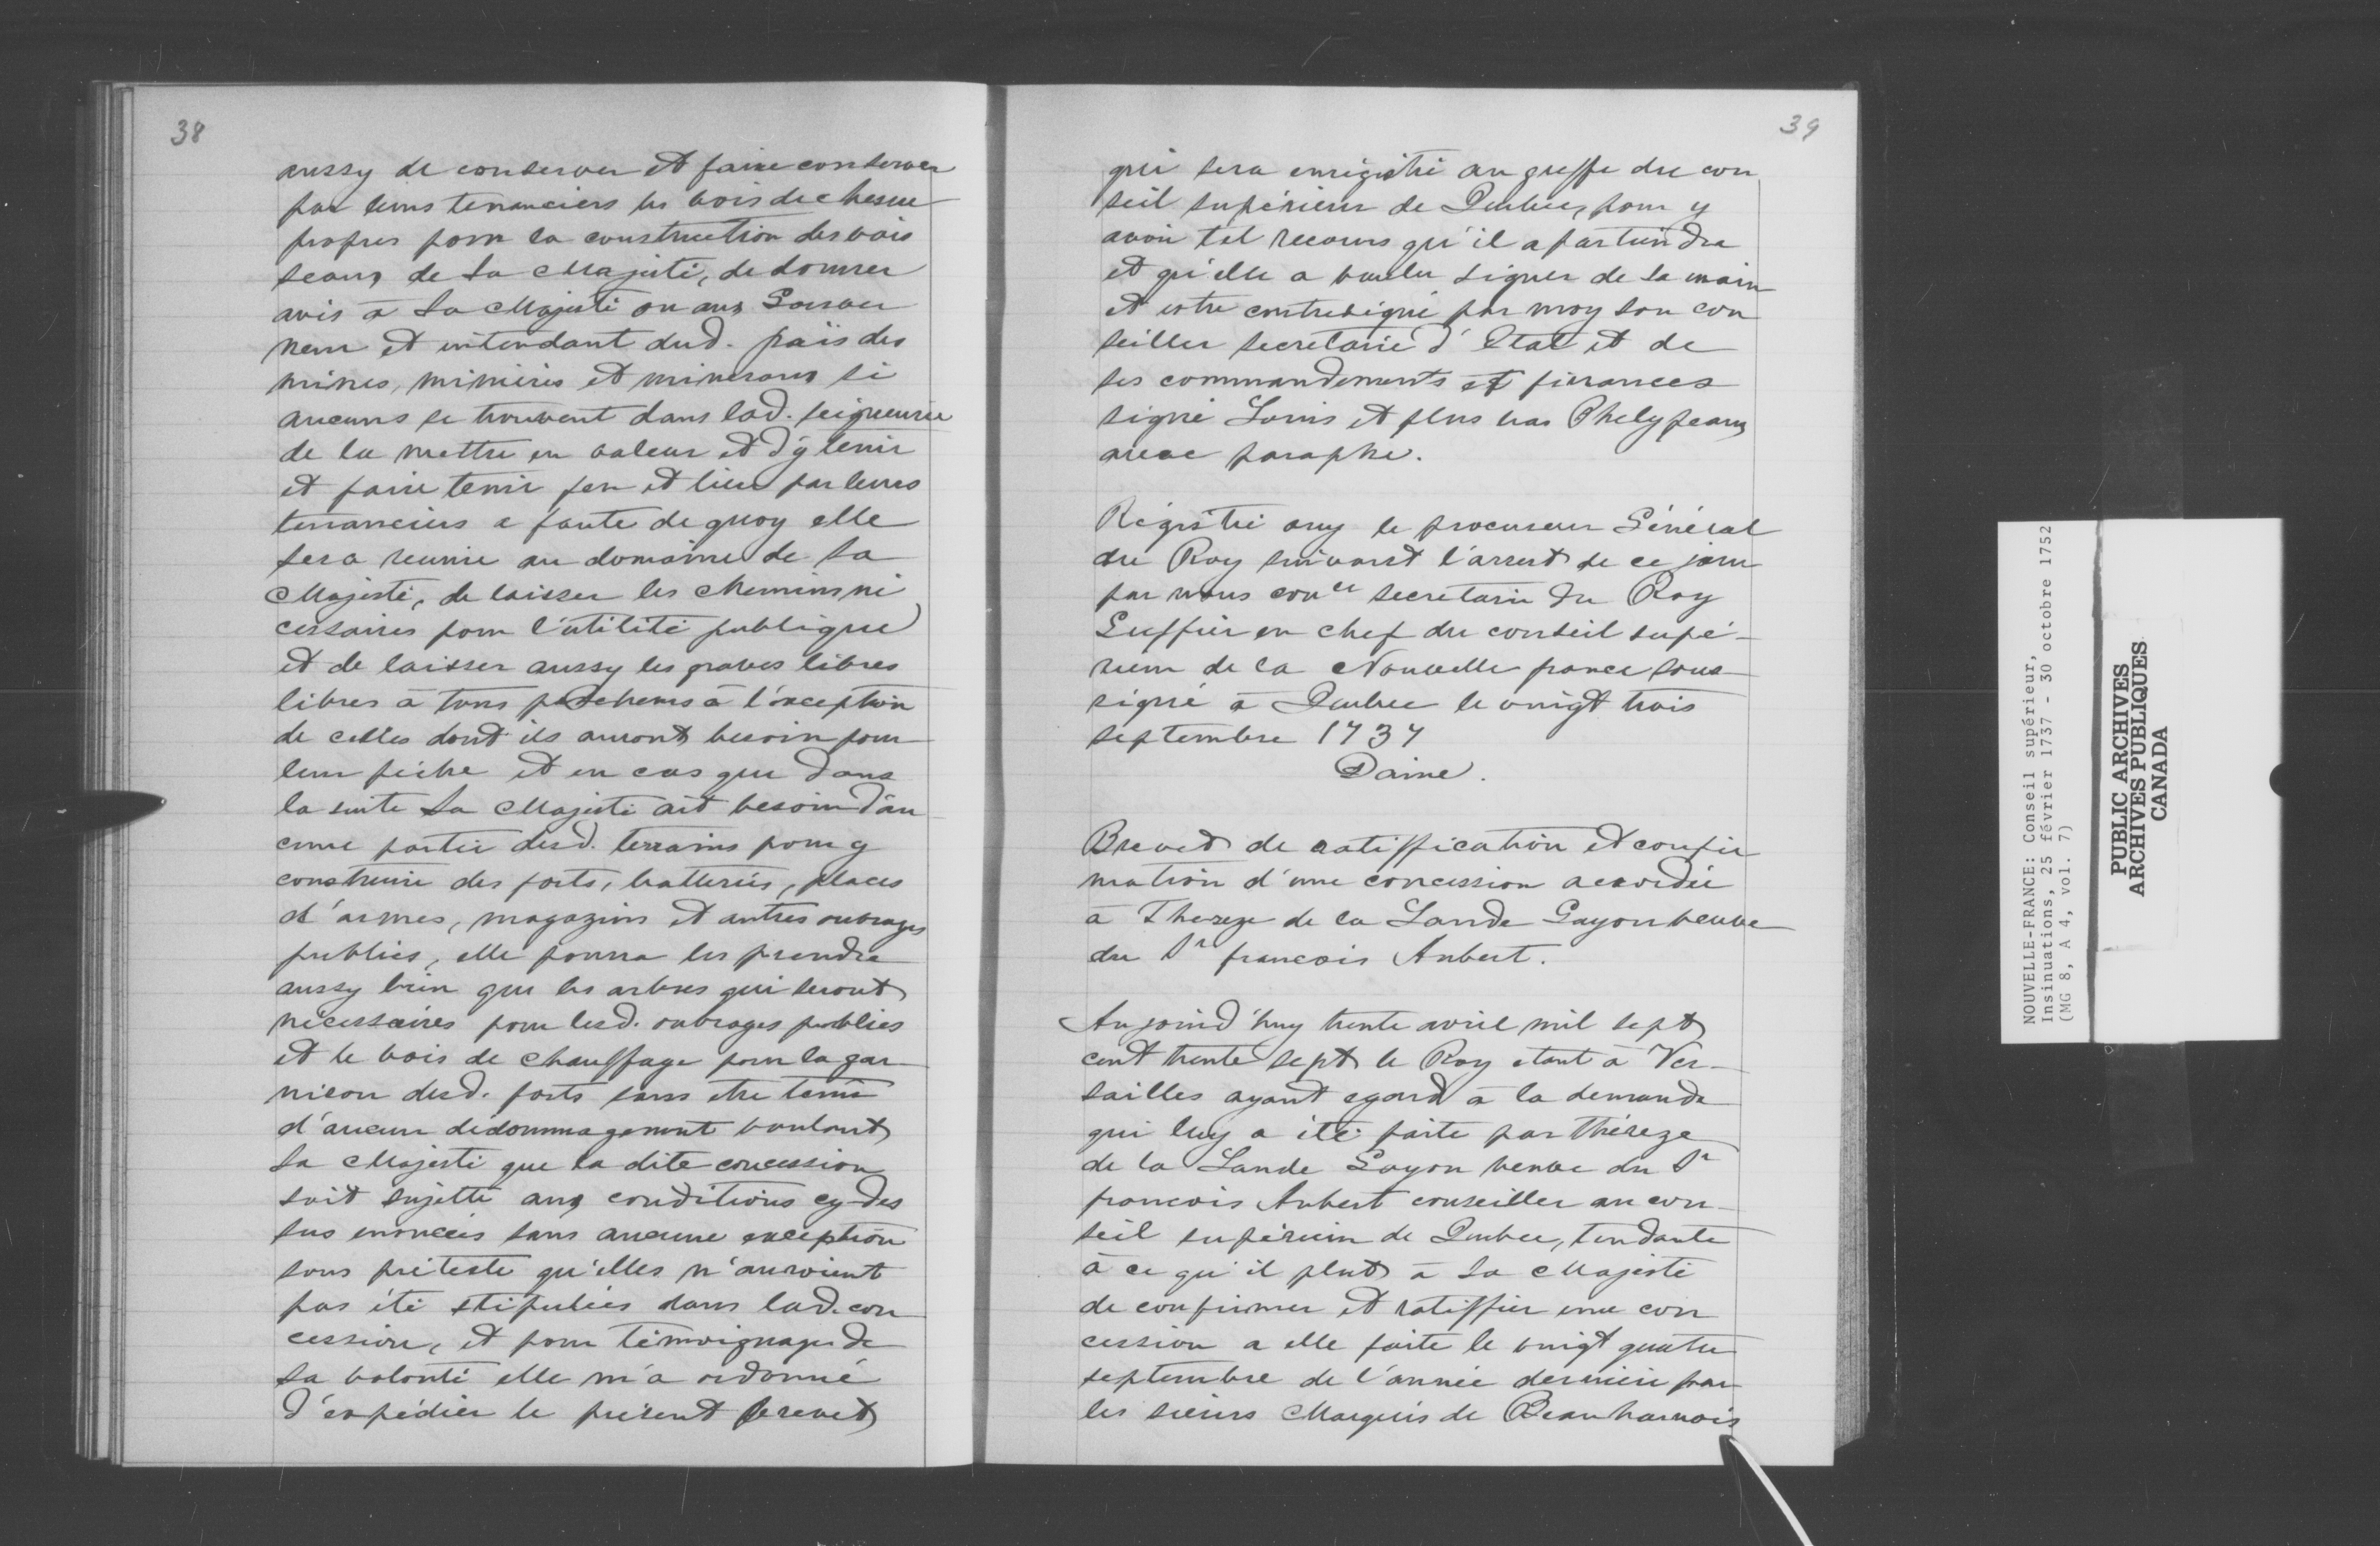 38
aussy de conserver et faire conserver
par leurs tenanciers les bois de chesne
propres pour la construction des vais
seaux de Sa Majesté, de donner
avis à Sa Majesté ou aux Gouver
neur et intendant dud. païs des
mines, minieres et mineraux si
aucuns se trouvent dans lad. seigneurie
de la mettre en valeur et d'y tenir
et faire tenir feu et lieu par leurs
tenanciers a faute de quoy elle
sera reunie au domaine de Sa
Majesté, de laisser les chemins né
cessaires pour l'utilité publique
et de laisser aussy les graves libres
libres à tous pescheurs à l'exception
de celles dont ils auront besoin pour
leur pêche et en cas que dans
la suite Sa Majesté ait besoin d'au
cune partie desd. terrains pour y
construire des forts, batteries, places
d'armes, magazins et autres ouvrages
publics, elle pourra les prendre
aussy bien que les arbres qui seront
nécessaires pour lesd. ouvrages publics
et le bois de chauffage pour la gar
nison desd. forts sans etre tenüe
d'aucun dedommagement voulant
Sa Majesté que la dite concession
soit sujette aux conditions cy-des
sus enoncées sans aucune exception
sous préteste qu'elles n'auroient
pas été stipulées dans lad. con
cession, et pour témoignage de
sa volonté elle m'a ordonné
d'expédier le présent brevet
39
qui sera enrigistré au greffe du con
seil supérieur de Quebec, pour y
avoir tel recours qu'il apartiendra
et qu'elle a voulu signer de sa main
et estre contresigné par moy son con
seiller secretaire d'Etat et de
ses commandements et finances
signé Louis et plus bas Phelypeaux
avec paraphe.
Régistré ouy le procureur Général
du Roy suivant l'arrest de ce jour
par nous con<sup>er</sup> secretaire du Roy
Greffier en chef du conseil supé-
rieur de la Nouvelle france sous
signé à Quebec le vingt trois
septembre 1737
Daine.
Brevet de ratiffication et confir
mation d'une concession accordée
à Thereze de la Lande Gayon veuve
du Sr francois Aubert.
Aujourd'huy trente avril mil sept
cent trente sept le Roy etant à Ver-
sailles ayant egard à la demande
qui luy a été faite par Théreze
de la Lande Gayon veuve du Sr
francois Aubert conseiller au con-
seil supérieur de Quebec, tendante
à ce qu'il plut à Sa Majesté
de confirmer et ratiffier une con
cession a elle faite le vingt quatre
septembre de l'année derniere par
les sieurs Marquis de Beauharnois
NOUVELLE-FRANCE: Conseil supérieur,
Insinuations, 25 février 1737 - 30 octobre 1752
(MG 8, A 4, vol. 7)
PUBLIC ARCHIVES
ARCHIVES PUBLIQUES
CANADA